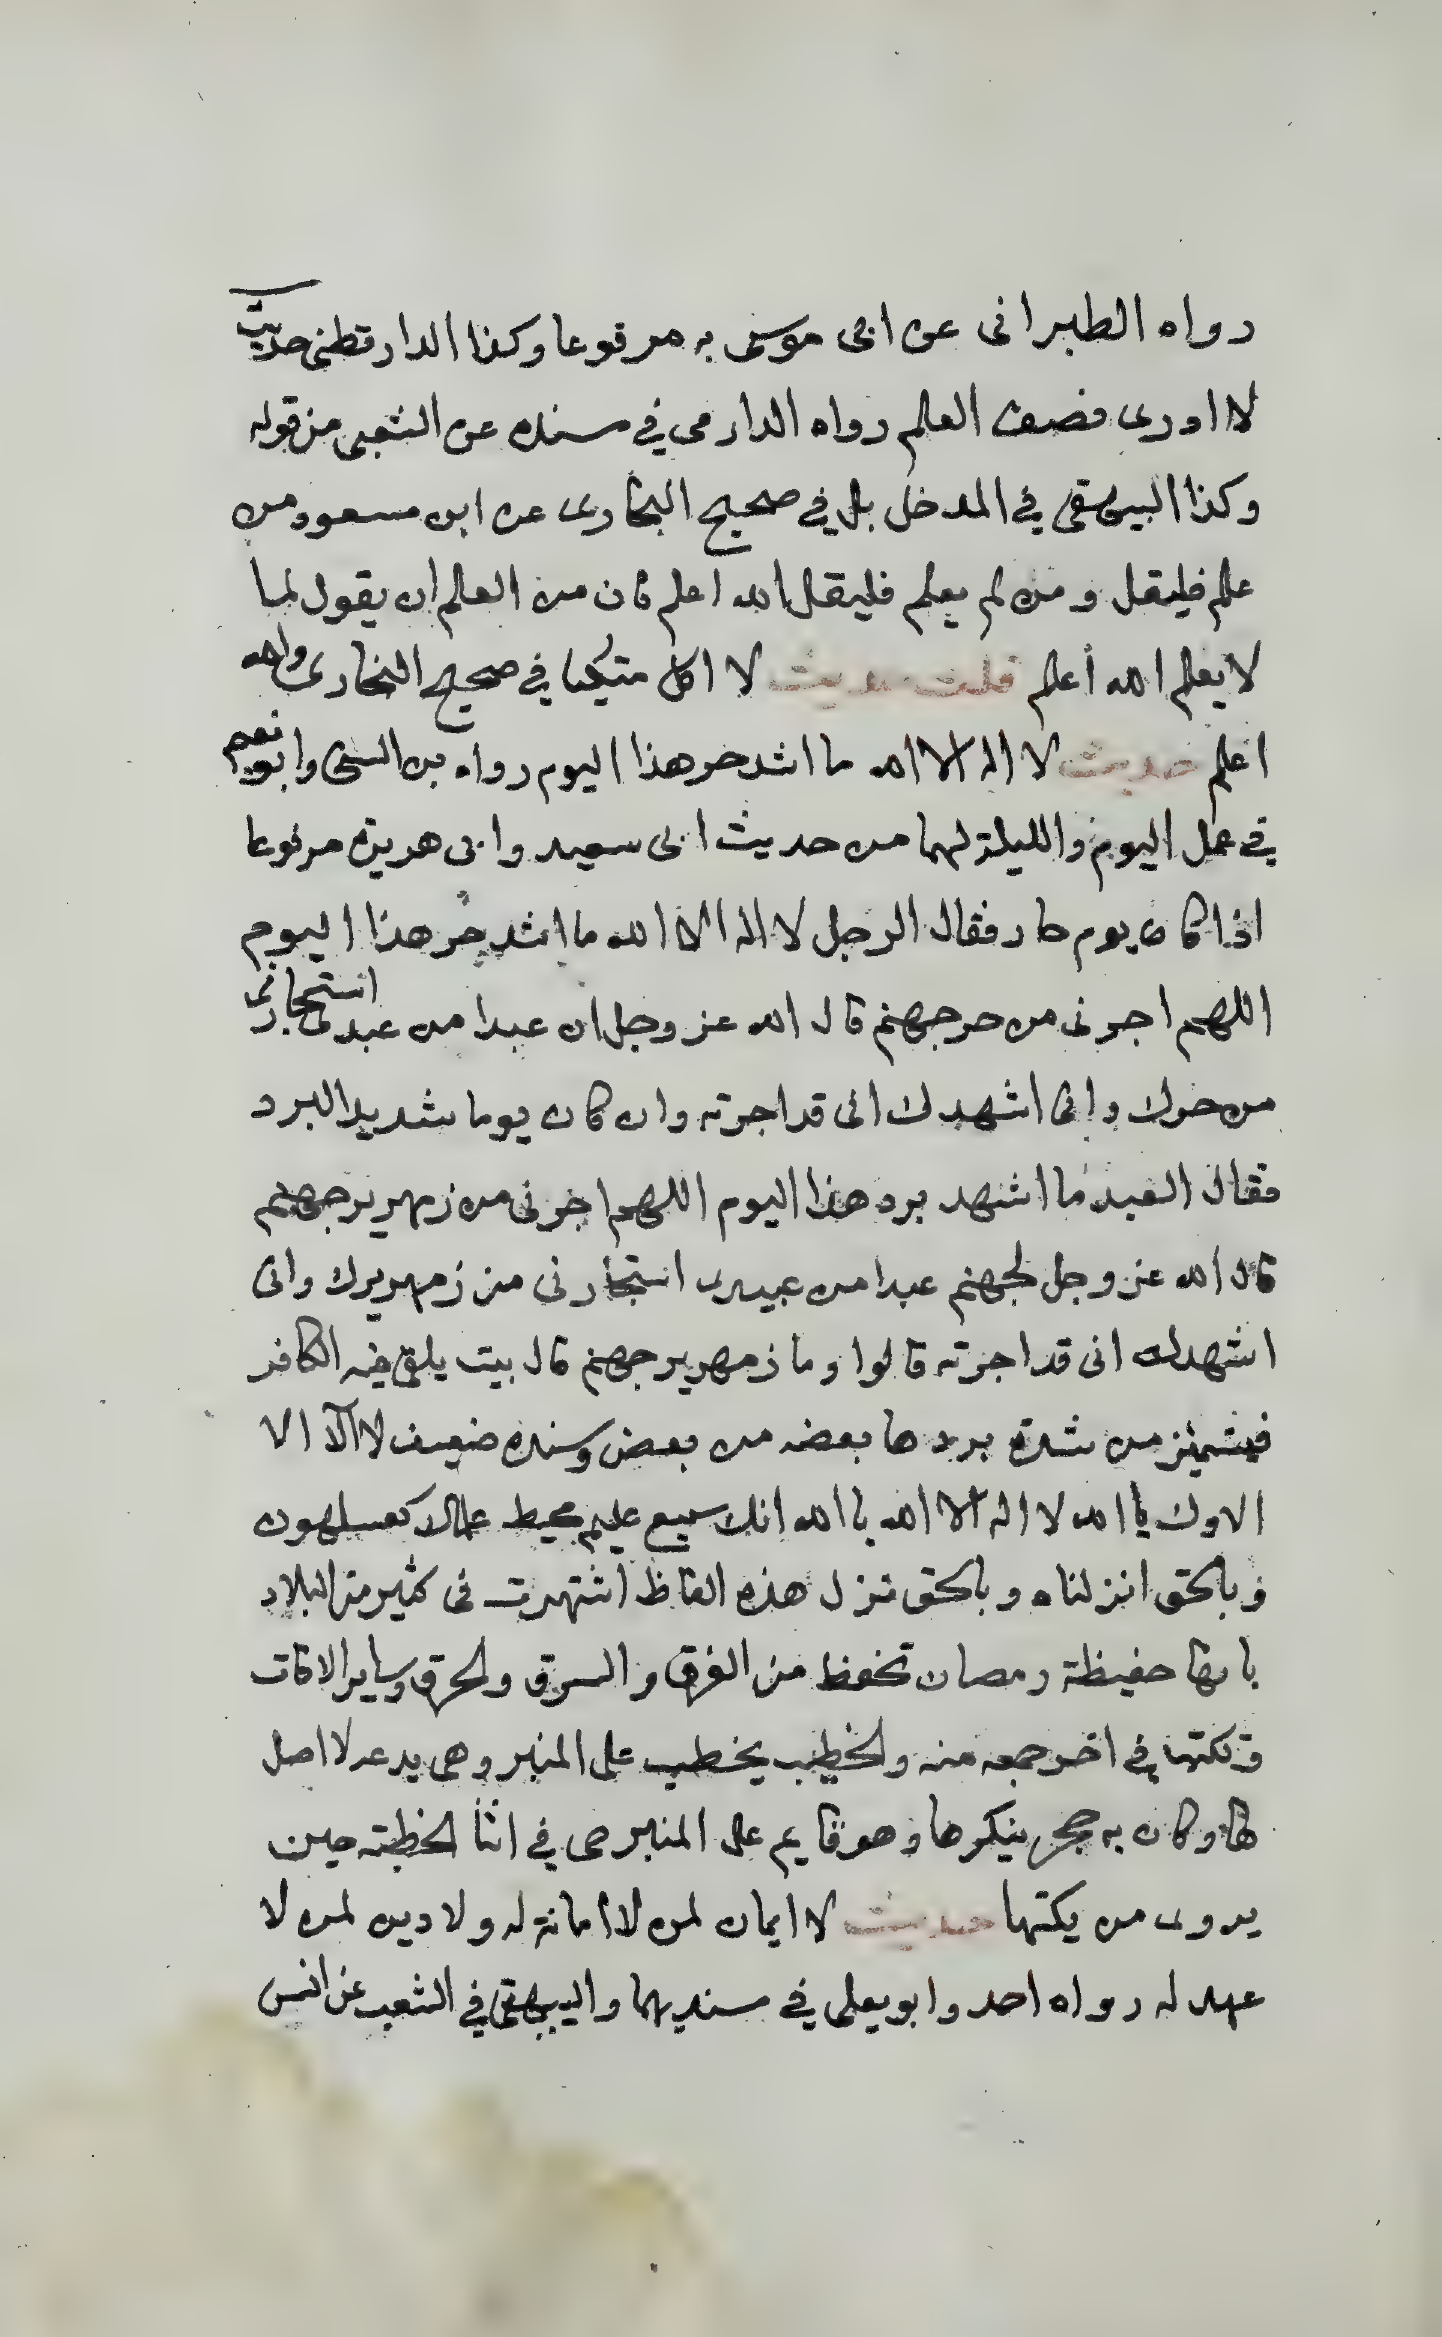 رواه الطبرانى عن ابى موسى به مرفوعا وكذا الدارقطنى حديث
لا ادرى نصف العلم رواه الدارمى في سنده عن الشعبى من قوله
وكذا البيهقى في المدخل بل في صحيح البخارى عن ابن مسعود من
علم فليقل ومن لم يعلم فليقل الله اعلم فان من العلم ان يقول لما
لا يعلم الله أعلم قلت حديث لا اكل متيكيا في صحيح البخارى والله
اعلم حديث لا اله الا الله ما اشد حر هذا اليوم رواه بن السنى وابو نعيم
في عمل اليوم والليلة لهما من حديث ابى سعيد وابى هريرة مرفوعا
اذا كان يوم حار فقال الرجل لا اله الا الله ما اشد حر هذا اليوم
اللهم اجرنى من حر جهنم قال الله عز وجل ان عبدا من عبدى استجارنى
من حرك وانى اشهدك انى قد اجرته وان كان يوما شديد البرد
فقال العبد ما اشهد برد هذا اليوم اللهم اجرنى من زمهرير جهنم
قال الله عز وجل لجهنم عبدا من عبيدى استجارنى من زمهريرك وانى
اشهدك انى قد اجرته قالوا وما زمهرير جهنم قال بيت يلقى فيه الكافر
فيتميز من شدة بردها بعضه من بعض وسنده ضعيف لا الآ الا
الاوك يا الله لا اله الا الله يا الله انك سميع عليم محيط علمك كعسلهون
وبالحق انزلناه وبالحق نزل هذه الفاظ اشتهرت فى كثير من البلاد
بانها حفيظة رمضان تحفظ من الغرق والسرق والحرق وساير الافات
وتكتب في اخر جمعه منه والخطيب يخطب على المنبر وهى بدعه لا اصل
لها وكان به حجر ينكرها وهو قايم على المنبر حى في اثنا الخطبة حين
يروى من يكتبها حديث لا ايمان لمن لا أمانة له ولا دين لمن لا
عهد له رواه احمد وابو يعلى في سنديهما والبيهقى في الشعب عن انس